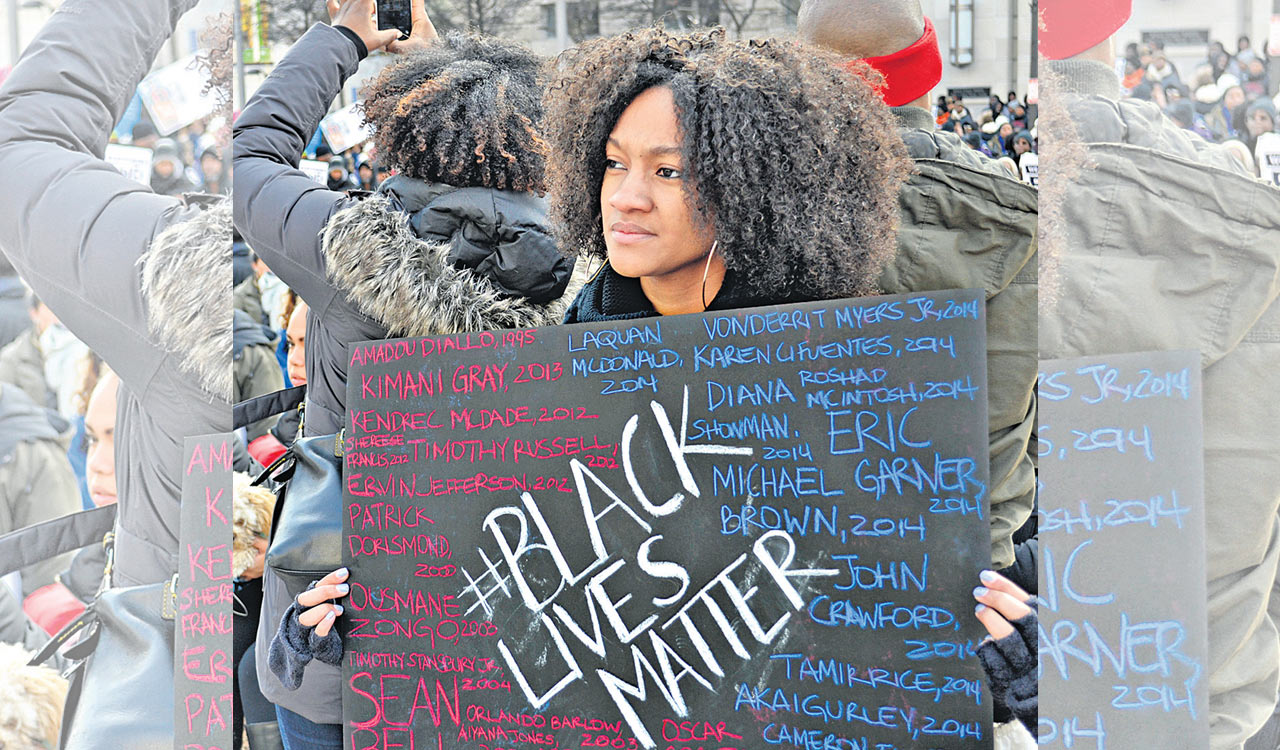 AMADOU DIALLO, 1995
KIMANI GRAY, 2013
KENDREC MCDADE, 2012
SHEREESE
FRANCIS, 2012
TIMOTHY RUSSELL,
2012
ERVIN JEFFERSON, 2012
PATRICK
DORISMOND,
2000
OUSMANE
ZONGO, 2003
TIMOTHY STANSBURY JR.,
2004
SEAN
BELL
ORLANDO BARLOW
AIYANA JONES, 2003
OSCAR
#BLACK
LIVES
MATTER
LAQUAN
MCDONALD,
2014
VONDERRIT MYERS JR, 2014
KAREN CIFUENTES, 2014
DIANA
SHOWMAN,
2014
ROSHAD
MCINTOSH, 2014
ERIC
GARNER,
2014
MICHAEL
BROWN, 2014
JOHN
CRAWFORD,
2014
TAMIR RICE, 2014
AKAI GURLEY, 2014
CAMERON